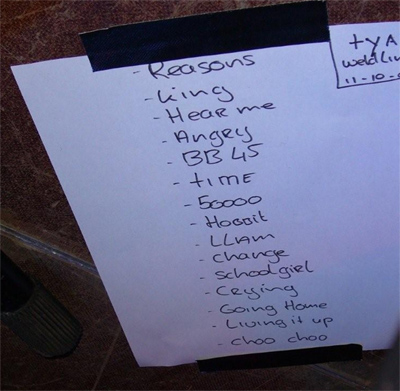 - Reasons
- King
- Hear me
- Angry
- BB 45
- time
- 50000
- Hobbit
- LLAM
- change
- schoolgirl
- Crying
- Going Home
- Living it up
- choo choo
tyA
11-10-